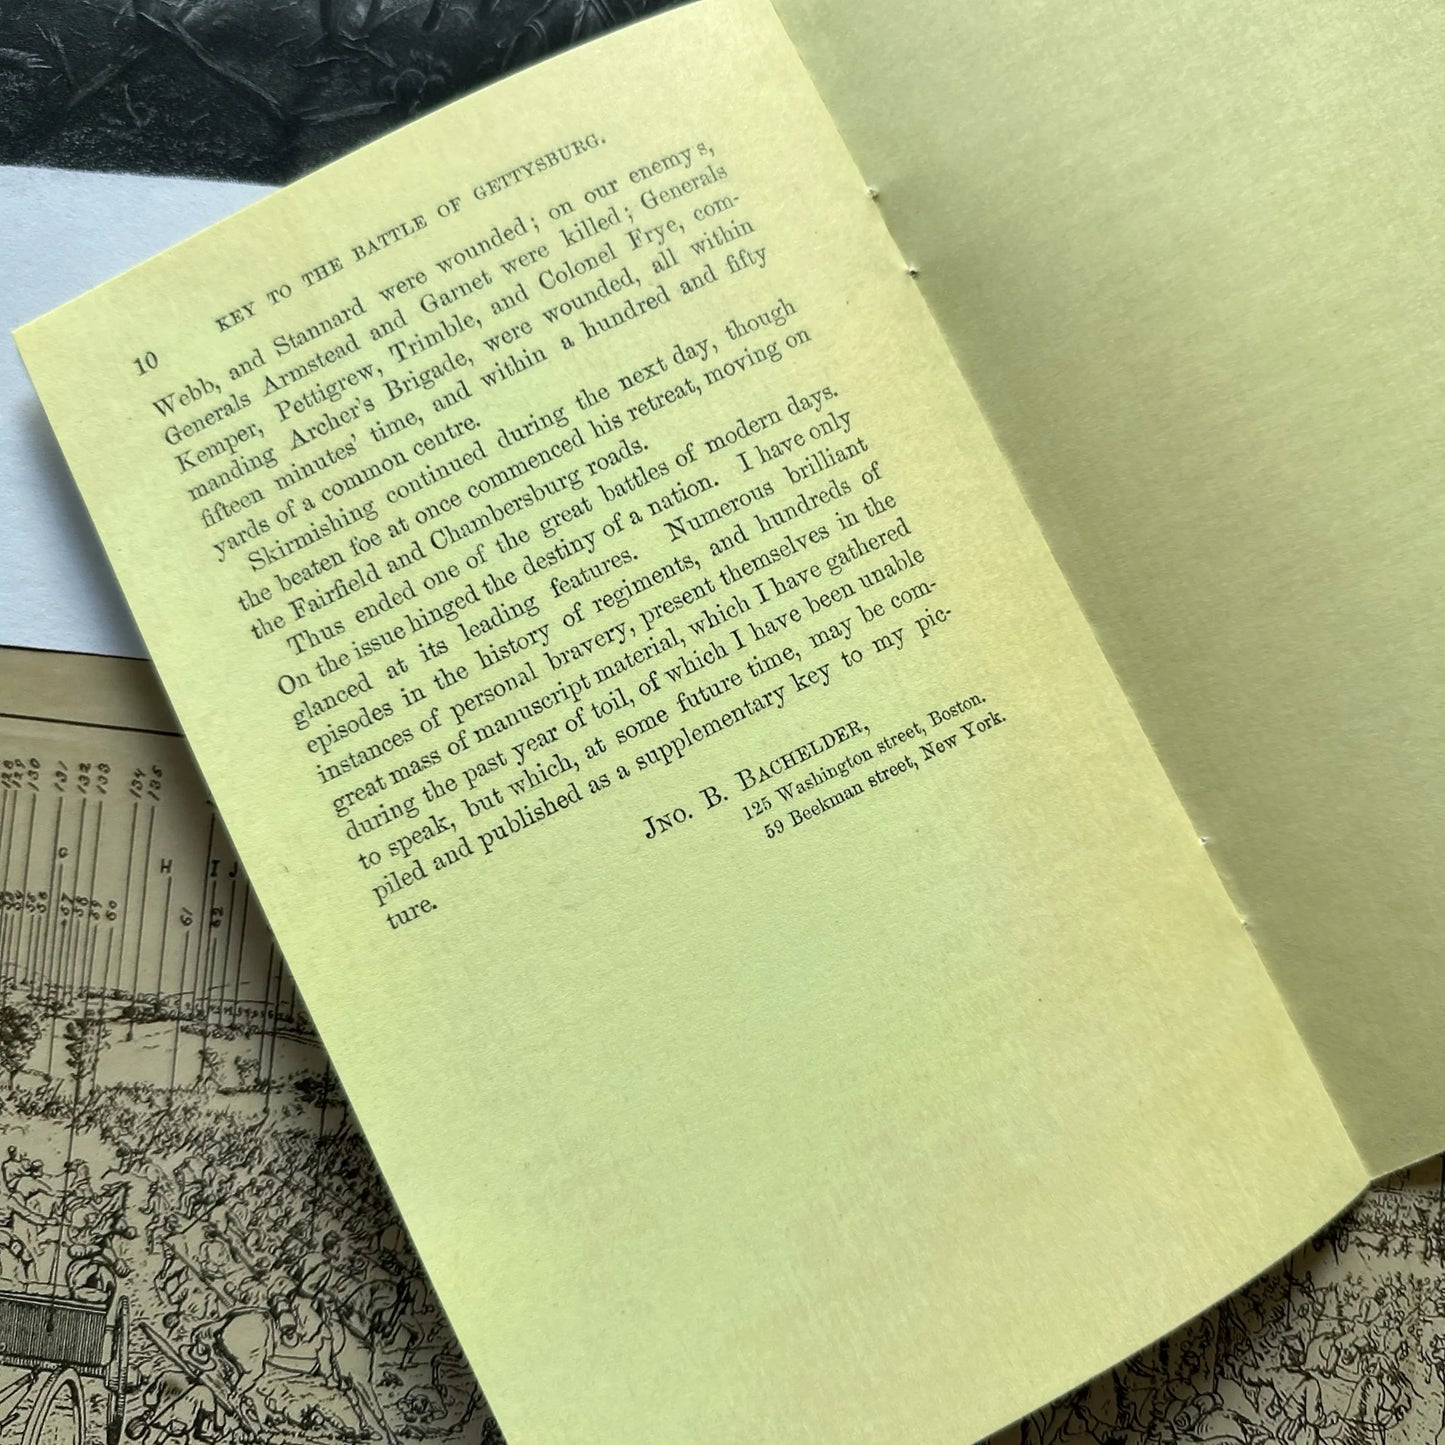 10 KEY TO THE BATTLE OF GETTYSBURG.
Webb, and Stannard were wounded; on our enemy's,
Generals Armstead and Garnet were killed; Generals
Kemper, Pettigrew, Trimble, and Colonel Frye, com-
manding Archer's Brigade, were wounded, all within
fifteen minutes' time, and within a hundred and fifty
yards of a common centre.
Skirmishing continued during the next day, though
the beaten foe at once commenced his retreat, moving on
the Fairfield and Chambersburg roads.
Thus ended one of the great battles of modern days.
On the issue hinged the destiny of a nation. I have only
glanced at its leading features. Numerous brilliant
episodes in the history of regiments, and hundreds of
instances of personal bravery, present themselves in the
great mass of manuscript material, which I have gathered
during the past year of toil, of which I have been unable
to speak, but which, at some future time, may be com-
piled and published as a supplementary key to my pic-
ture.
JNO. B. BACHELDER,
125 Washington street, Boston.
59 Beekman street, New York.
129 130 131 132 133 134 135
G H I J
58 59 60 61 62